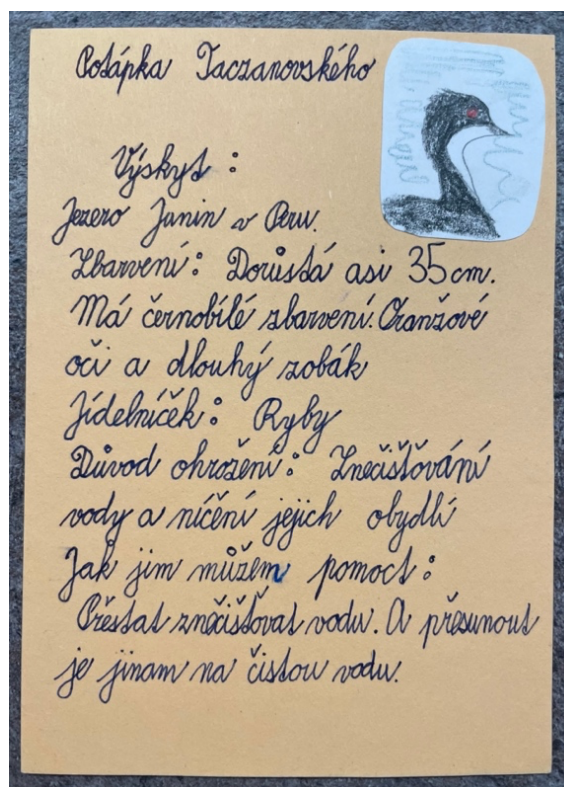 Potápka Taczanovského
Výskyt:
Jezero Junin v Peru.
Zbarvení: Dorůstá asi 35 cm.
Má černobílé zbarvení. Oranžové
oči a dlouhý zobák
Jídelníček: Ryby
Důvod ohrožení: Znečišťování
vody a ničení jejich obydlí
Jak jim můžem pomoct:
Přestat znečišťovat vodu. A přesunout
je jinam na čistou vodu.